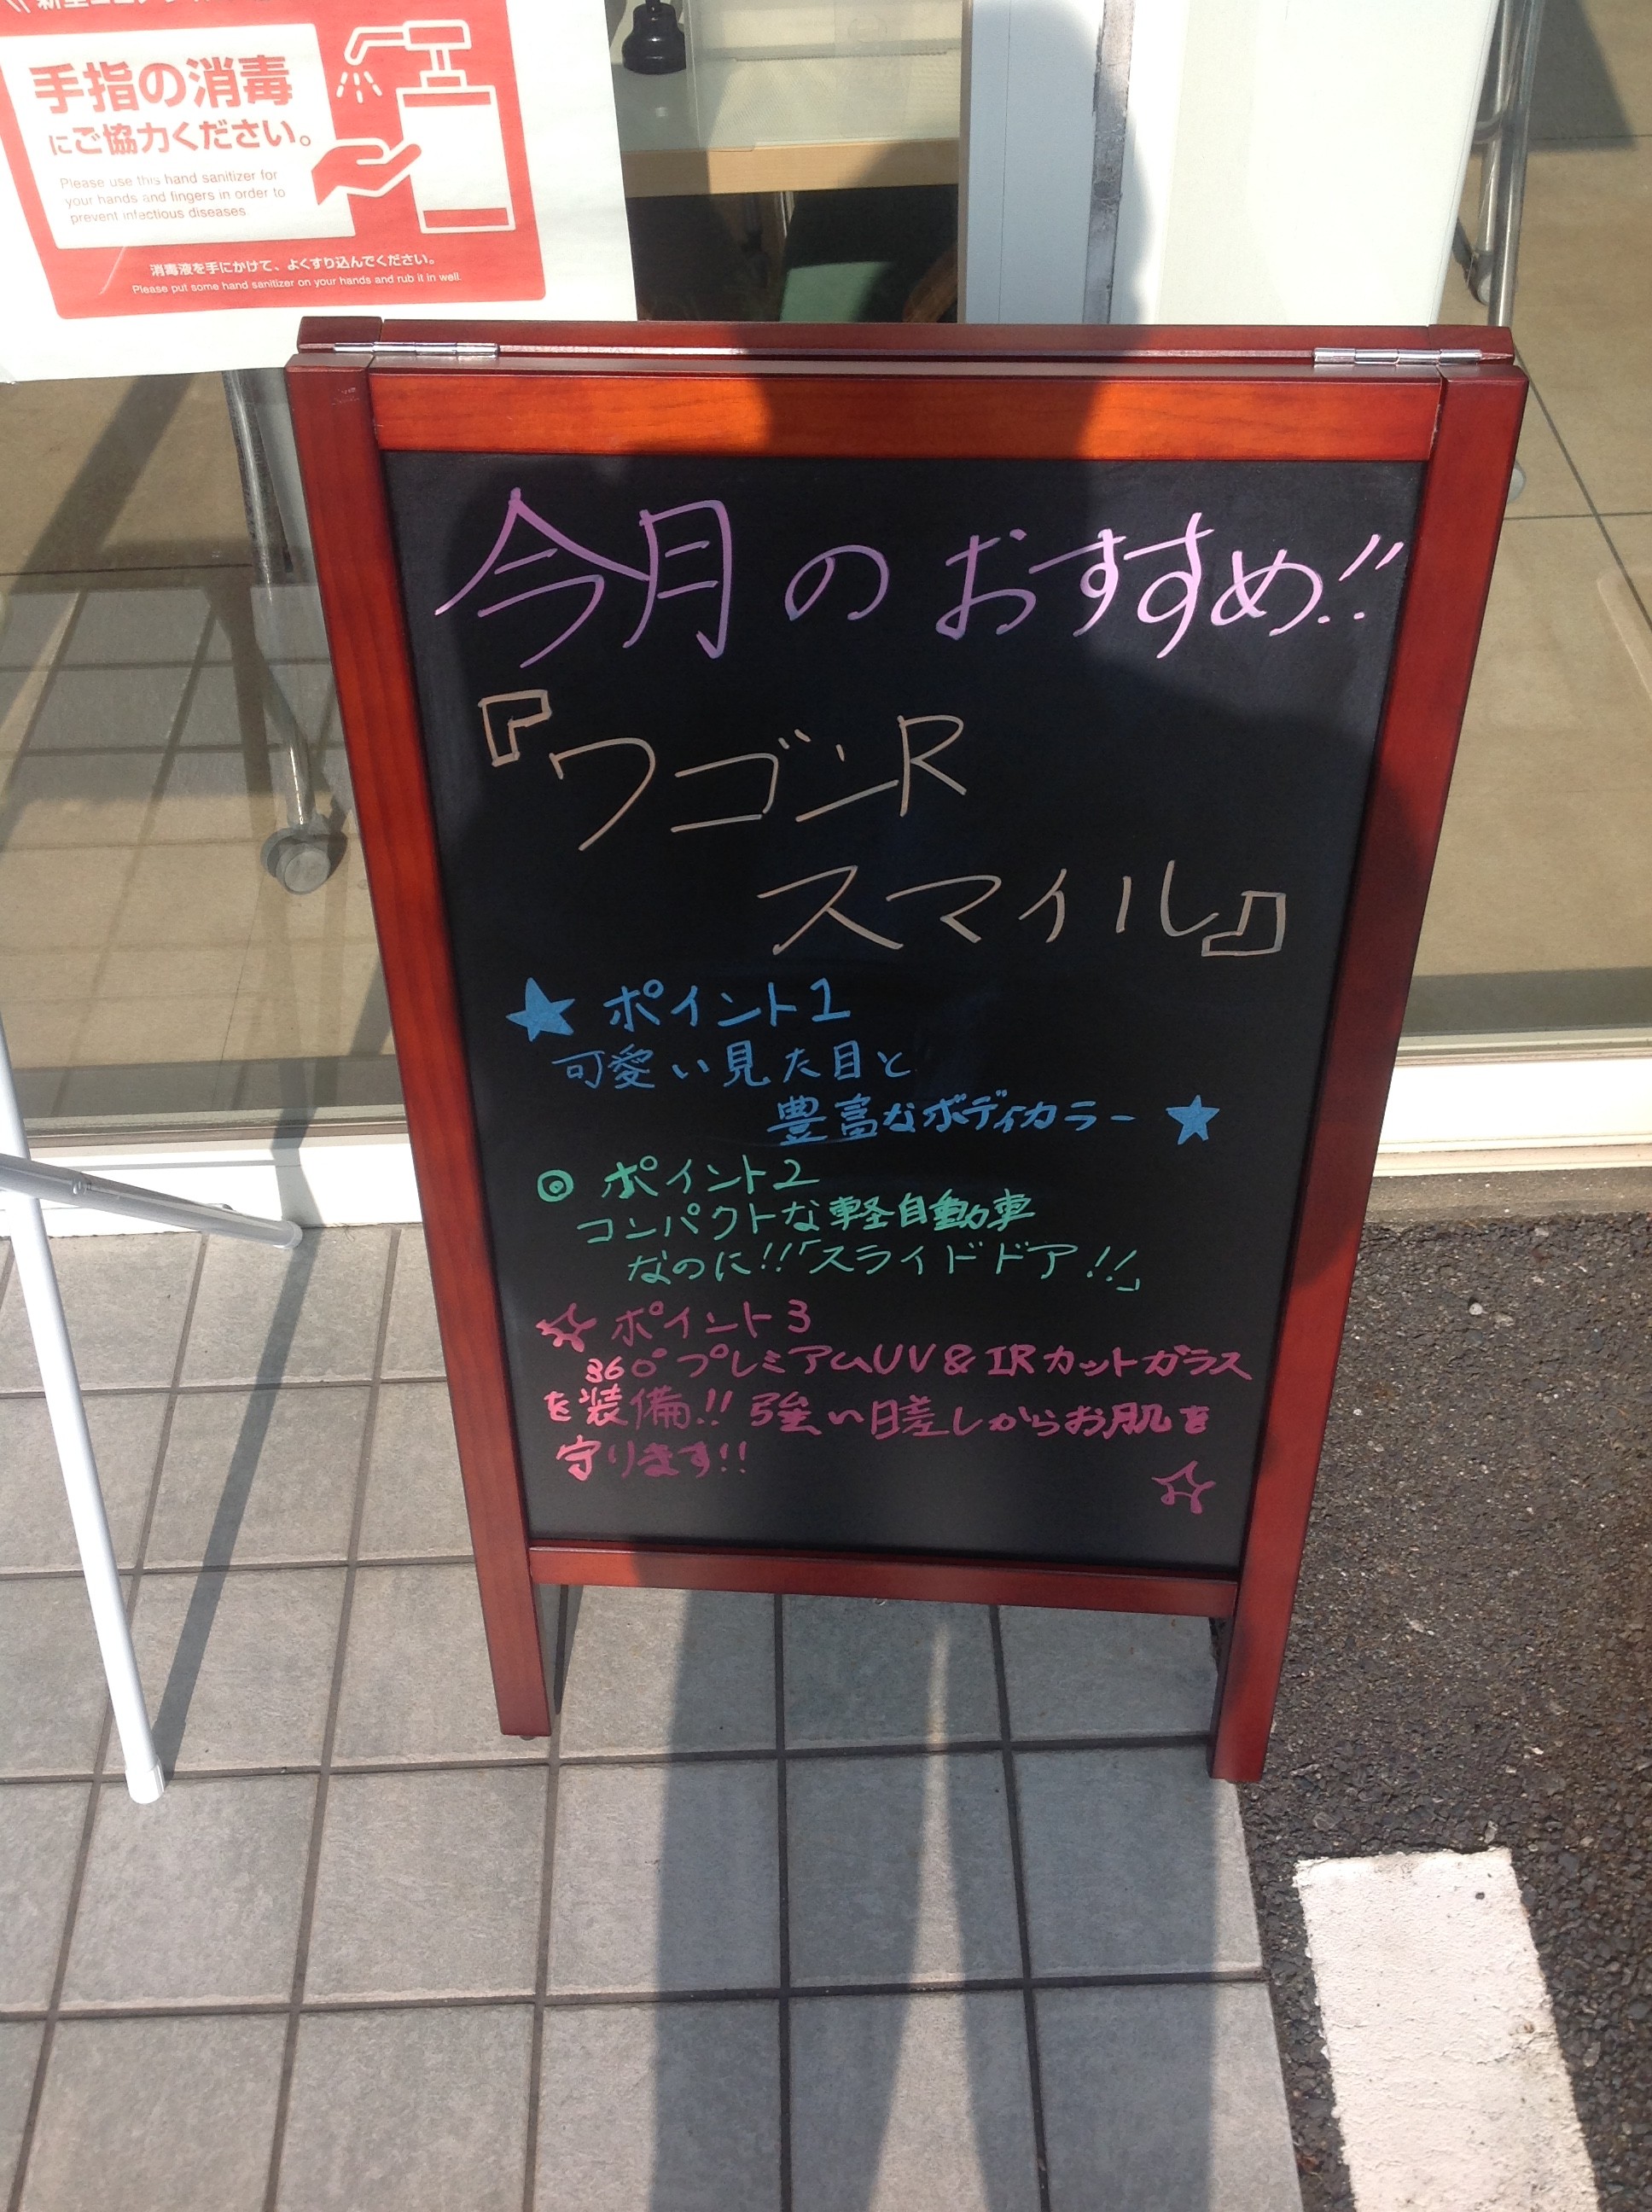 手指の消毒
にご協力ください。
Please use this hand sanitizer for
your hands and fingers in order to
prevent infectious diseases.
消毒液を手にかけて、よくすり込んでください。
Please put some hand sanitizer on your hands and rub it in well.
今月のおすすめ!!
『ワゴンR
スマイル』
★ ポイント1
可愛い見た目と
豊富なボディカラー ★
◎ ポイント2
コンパクトな軽自動車
なのに!!「スライドドア!!」
☆ ポイント3
360°プレミアムUV&IRカットガラス
を装備!! 強い日差しからお肌を
守ります!!
☆